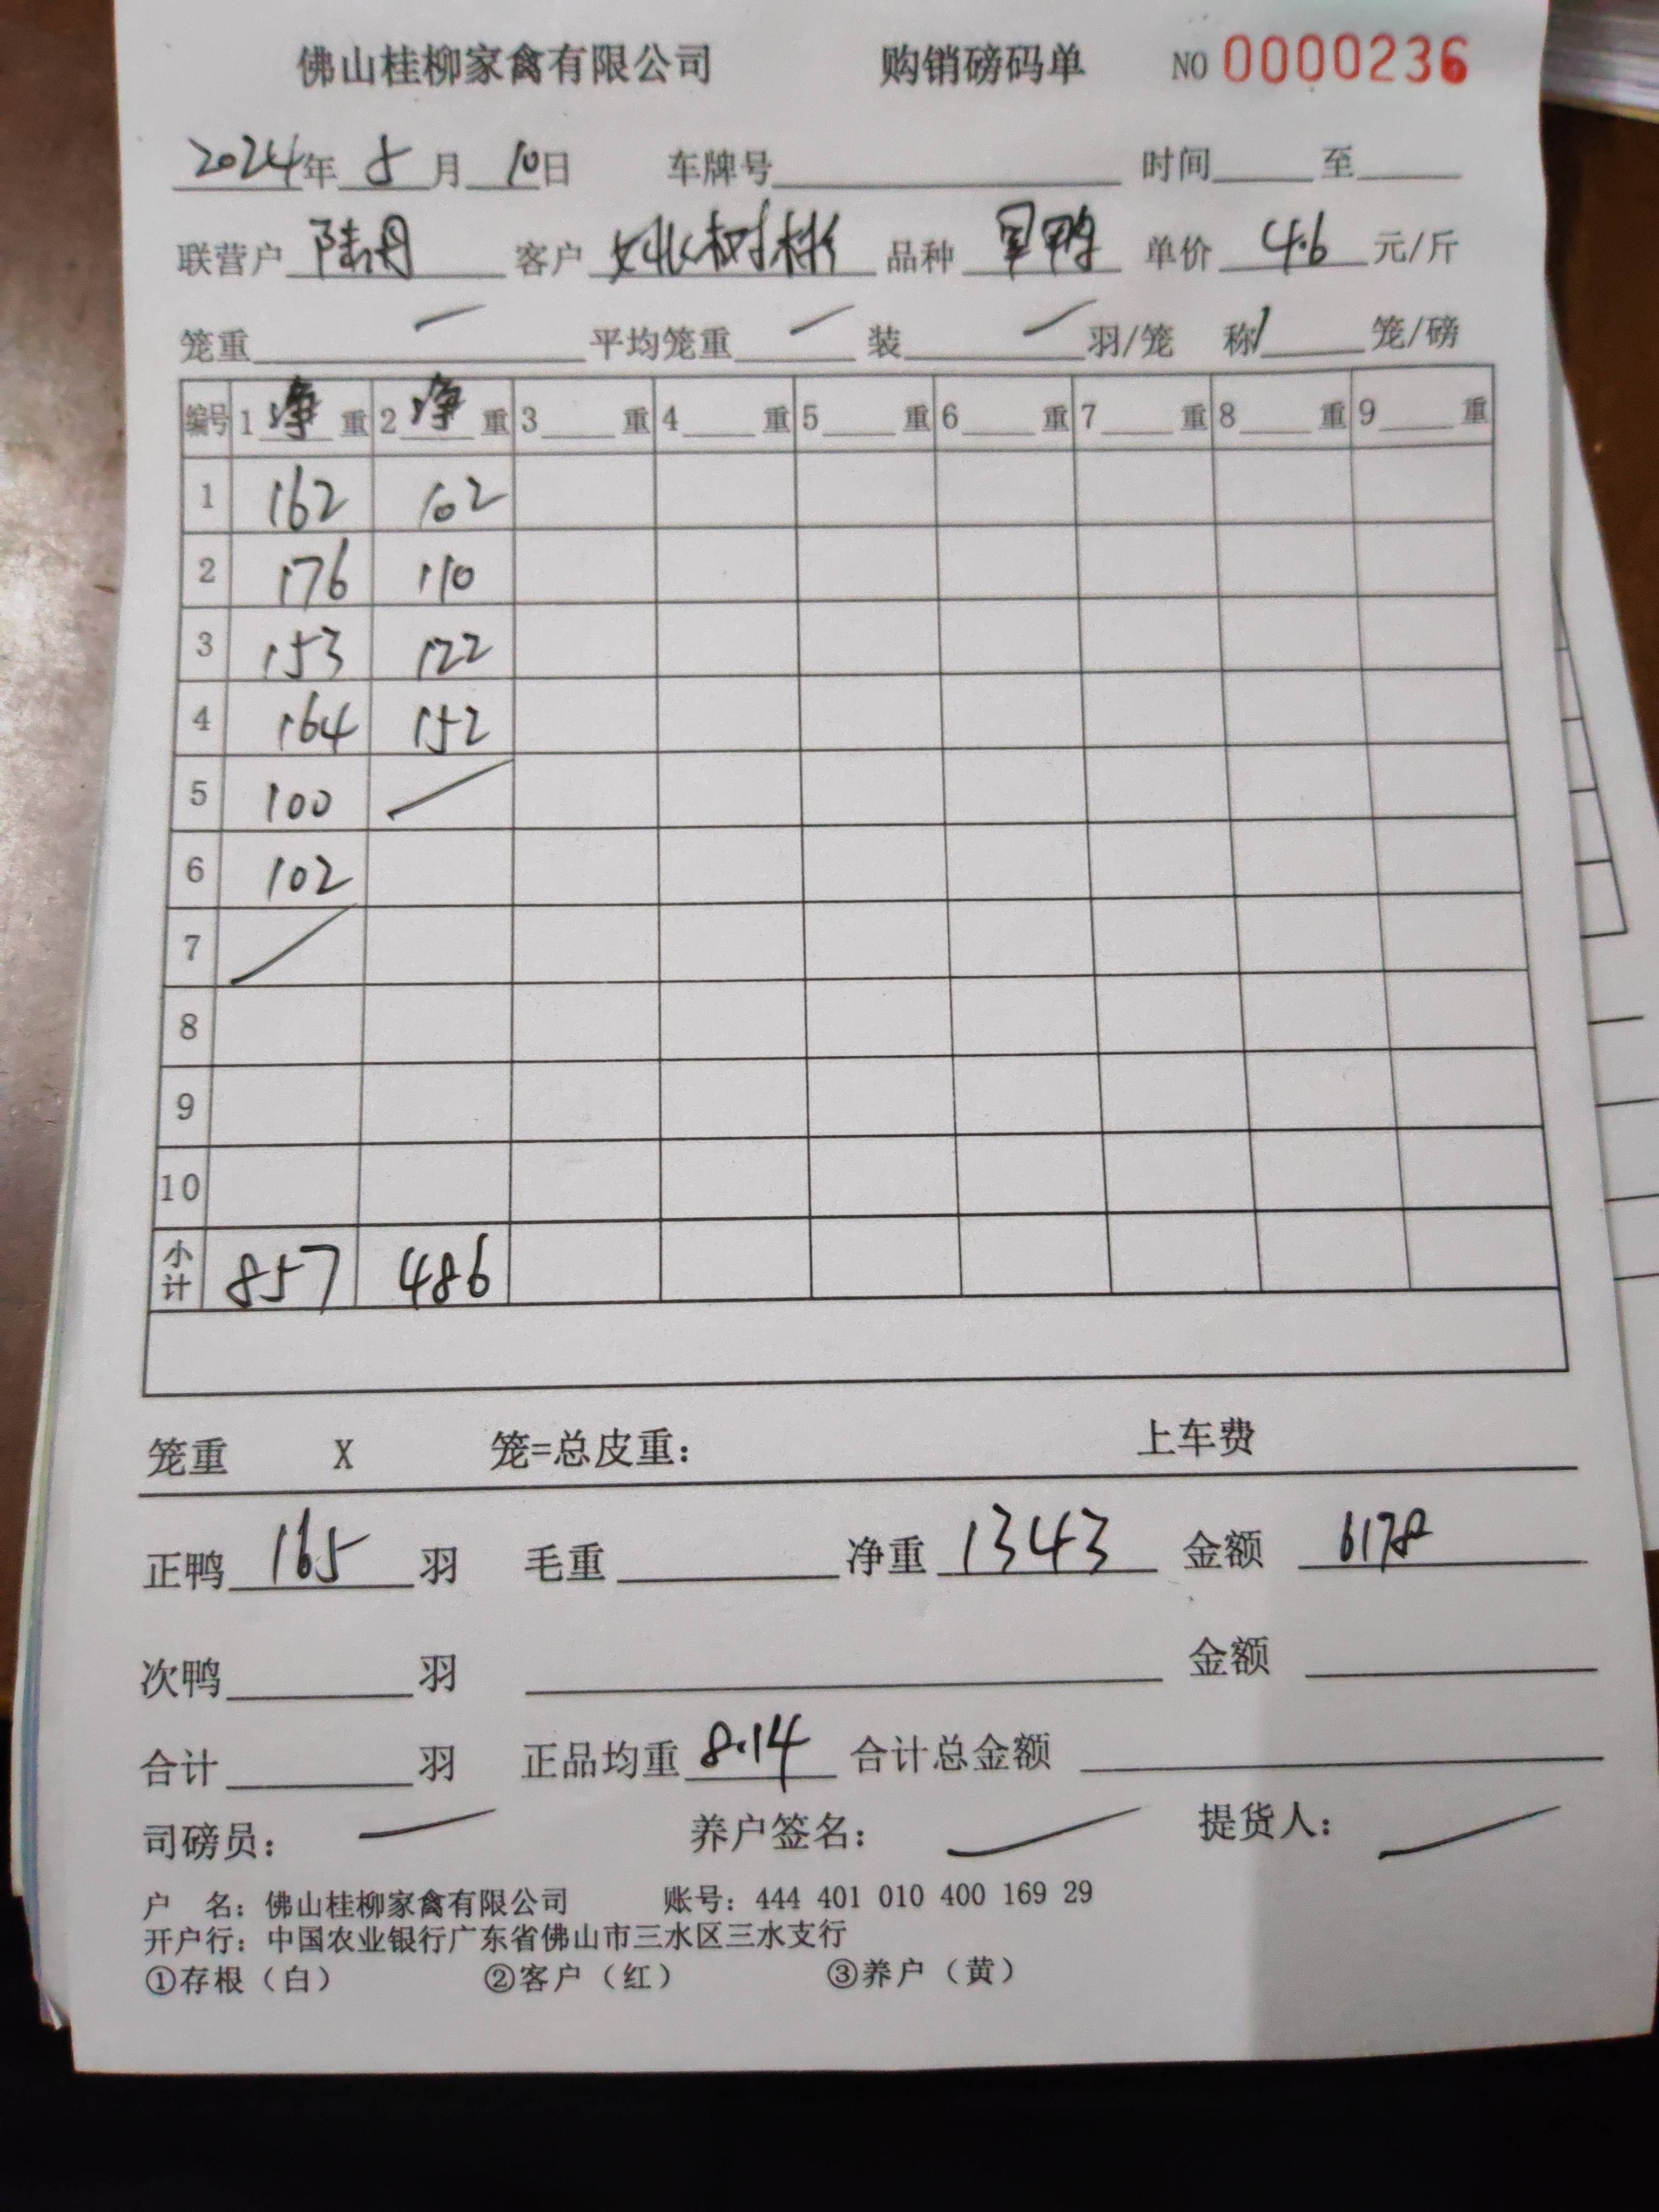 佛山桂柳家禽有限公司 购销磅码单 NO 0000236
2024年 5月 10日 车牌号 时间 至
联营户 陆丹 客户 姚树彬 品种 单价 4.6 元/斤
笼重 平均笼重 装 羽/笼 称 笼/磅
编号 1 净 重 2 净 重 3 重 4 重 5 重 6 重 7 重 8 重 9 重
1 162 102
2 176 110
3 153 122
4 164 152
5 100
6 102
7
8
9
10
小计 857 486
笼重 X 笼=总皮重: 上车费
正鸭 165 羽 毛重 净重 1343 金额 6178
次鸭 羽 金额
合计 羽 正品均重 8.14 合计总金额
司磅员: 养户签名: 提货人:
户 名: 佛山桂柳家禽有限公司 账号: 444 401 010 400 169 29
开户行: 中国农业银行广东省佛山市三水区三水支行
①存根（白） ②客户（红） ③养户（黄）